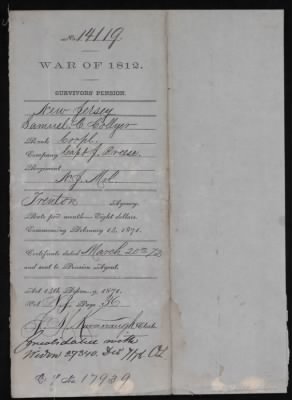 No. 14119
WAR OF 1812.
SURVIVORS' PENSION.
New Jersey
Samuel C Collyer
Rank Corpl.
Company Capt J. Dreese
Regiment
N.J. Mil
Trenton Agency.
Rate per month—Eight dollars.
Commencing February 14, 1871.
Certificate dated March 20th/72
and sent to Pension Agent.
Act 14th Feb'y, 1871.
Vol. N.J. Page 36
Kavanaugh Clerk
Consolidated with
27340. Dec 7/78
No 17939